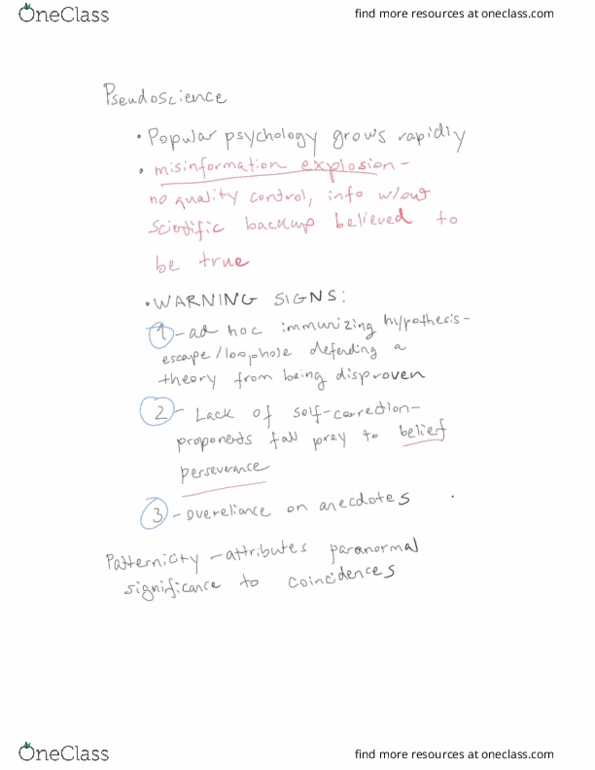 OneClass
find more resources at oneclass.com
Pseudoscience
• Popular psychology grows rapidly
• misinformation explosion -
no quality control, info w/out
scientific backup believed to
be true
• WARNING SIGNS:
1 - ad hoc immunizing hypothesis -
escape/loophole defending a
theory from being disproven
2 - Lack of self-correction -
proponents fall prey to belief
perseverance
3 - overeliance on anecdotes
Patternicity - attributes paranormal
significance to coincidences
OneClass
find more resources at oneclass.com